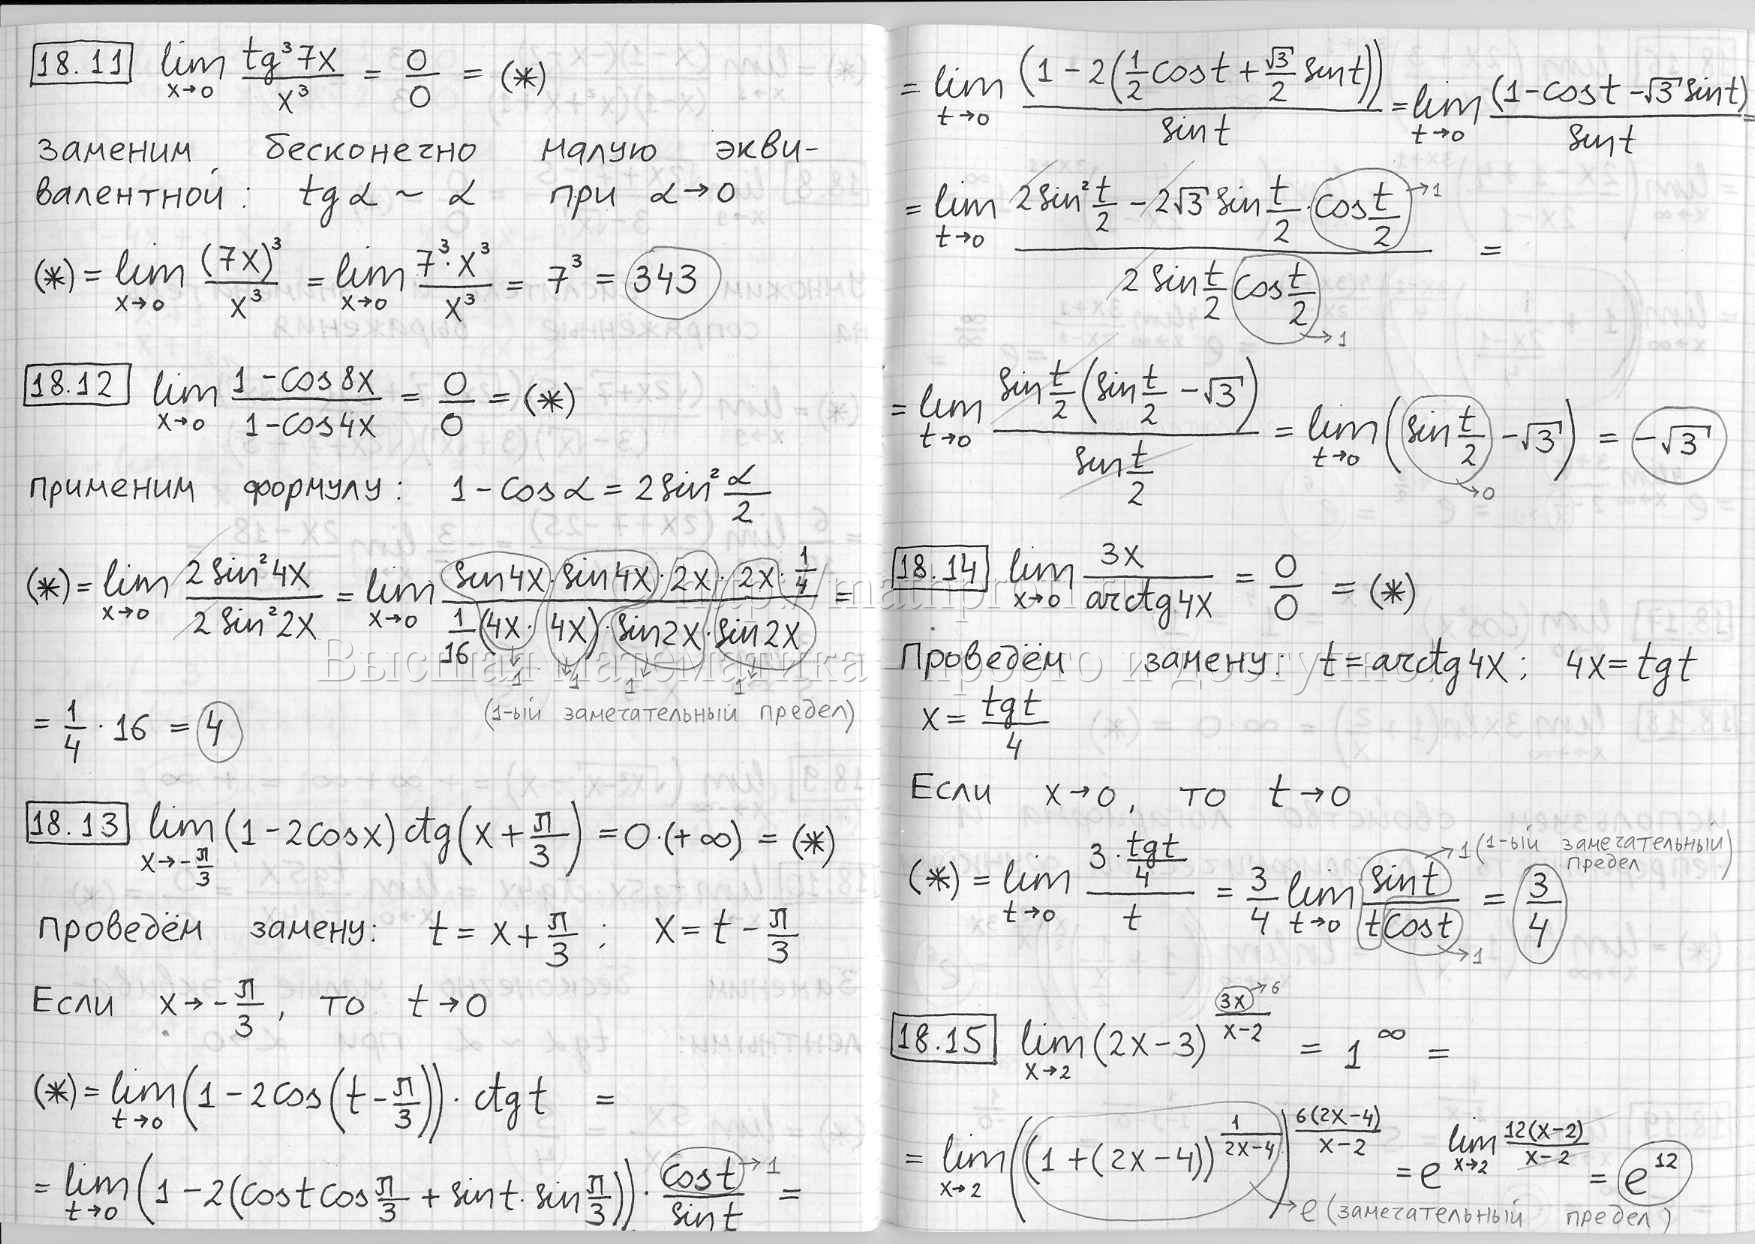 18.11 lim x→0 tg³7x / x³ = 0/0 = (*)
Заменим бесконечно малую экви-
валентной: tg α ~ α при α→0
(*) = lim x→0 (7x)³ / x³ = lim x→0 7³·x³ / x³ = 7³ = 343
18.12 lim x→0 1-cos8x / 1-cos4x = 0/0 = (*)
применим формулу: 1-cos α = 2sin² α/2
(*) = lim x→0 2sin²4x / 2sin²2x = lim x→0 sin4x·sin4x·2x·2x·1/4 / 1/16(4x·4x)·sin2x·sin2x =
1 1 1 1
(1-ый замечательный предел)
= 1/4·16 = 4
18.13 lim x→-π/3 (1-2cosx)ctg(x+π/3) = 0·(+∞) = (*)
Проведём замену: t = x+π/3; x = t-π/3
Если x→-π/3, то t→0
(*) = lim t→0 (1-2cos(t-π/3))·ctgt =
= lim t→0 (1-2(cost cos π/3 + sint·sin π/3))·cost→1 / sint =
= lim t→0 (1-2(1/2 cost + √3/2 sint)) / sint = lim t→0 (1-cost-√3 sint) / sint =
= lim t→0 2sin² t/2 - 2√3 sin t/2·cos t/2→1 / 2sin t/2 cos t/2→1 =
= lim t→0 sin t/2 (sin t/2 - √3) / sin t/2 = lim t→0 (sin t/2→0 - √3) = -√3
18.14 lim x→0 3x / arctg4x = 0/0 = (*)
Проведём замену: t = arctg4x; 4x = tgt
x = tgt/4
Если x→0, то t→0
(*) = lim t→0 3·tgt/4 / t = 3/4 lim t→0 sint / t cost→1 = 3/4
→1 (1-ый замечательный
предел)
18.15 lim x→2 (2x-3)^(3x→6 / x-2) = 1^∞ =
= lim x→2 ((1+(2x-4))^(1/2x-4))^(6(2x-4)/x-2) = e^(lim x→2 12(x-2)/x-2) = e^12
→e (замечательный предел)
http://mathpr
Высшая математика просто и доступно